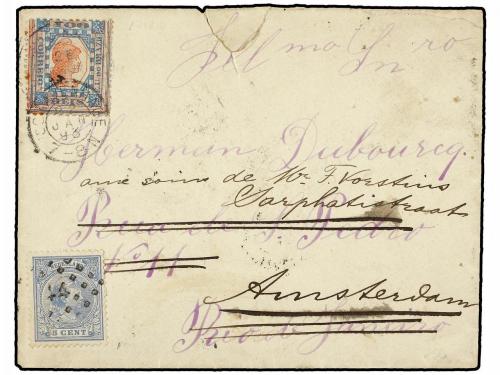 Il mo Sn ro
Herman Dubourcq
aux soins de Mr F. Vorstius
Sarphatistraat
Rua de S. Pedro
No 11
Amsterdam
Rio de Janeiro
CORREIO
REIS
100
JAN
93
5 CENT